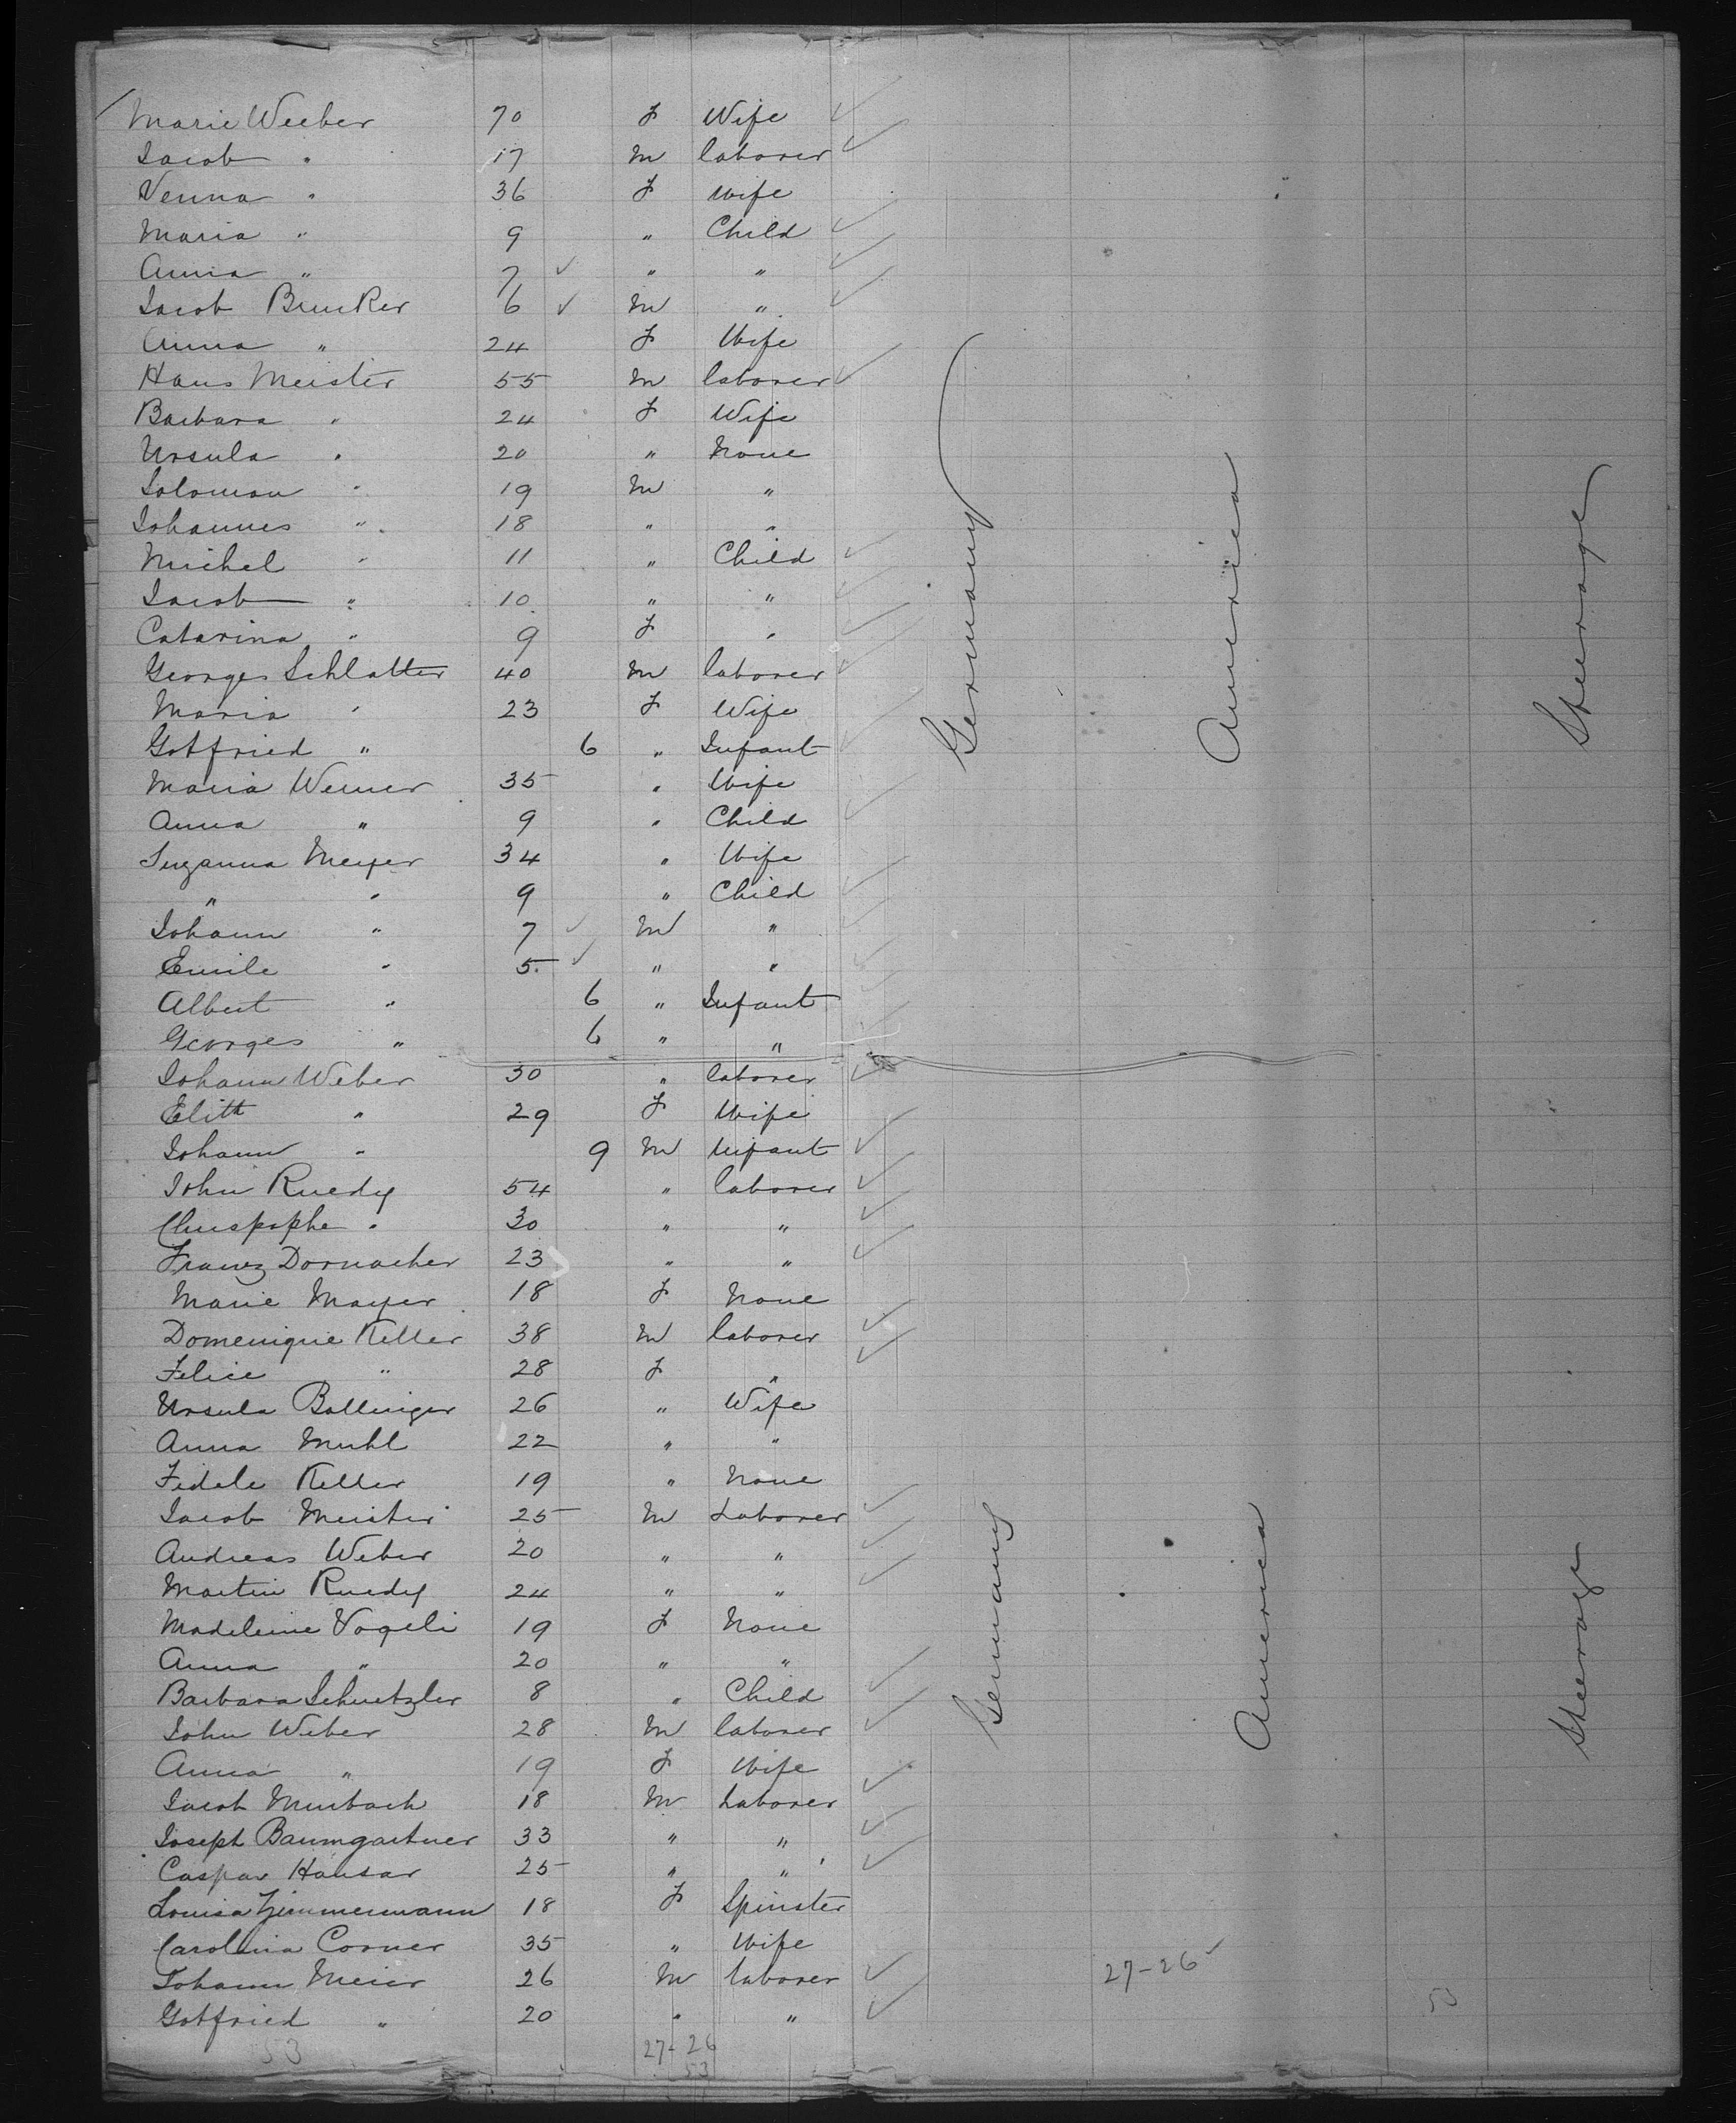 Marie Weeber 70 F Wife
Jacob " 17 M laborer
Verina " 36 F Wife
Maria " 9 " Child
Anna " 7 " "
Jacob Brucker 6 M "
Anna " 24 F Wife
Hans Meister 55 M laborer
Barbara " 24 F Wife
Ursula " 20 " None
Solomon " 19 M "
Johannes " 18 " "
Michel " 11 " Child
Jacob " 10 " "
Catarina " 9 F "
Georges Schlatter 40 M laborer
Maria " 23 F Wife
Gottfried " 6 " Infant
Maria Werner 35 " Wife
Anna " 9 " Child
Suzanna Meyer 34 " Wife
" " 9 " Child
Johann " 7 M "
Emile " 5 " "
Albert " 6 " Infant
Georges " 6 " "
Germany America Steerage
Johann Weber 30 " laborer
Elith " 29 F Wife
Johann " 9 M Infant
John Ruedy 54 " laborer
Chrispophe " 30 " "
Franz Dornacher 23 " "
Marie Mayer 18 F None
Domenique Keller 38 M laborer
Felice " 28 F "
Ursula Bollinger 26 " Wife
Anna Muhl 22 " "
Fidele Keller 19 " None
Jacob Meister 25 M Laborer
Andreas Weber 20 " "
Martin Ruedy 24 " "
Madeleine Vogeli 19 F None
Anna " 20 " "
Barbara Schnetzler 8 " Child
John Weber 28 M laborer
Anna " 19 F Wife
Jacob Murbach 18 M Laborer
Joseph Baumgartner 33 " "
Caspar Hausar 25 " "
Louisa Zimmermann 18 F Spinster
Carolina Corner 35 " Wife
Johann Meier 26 M laborer
Gottfried " 20 " "
Germany America Steerage
27-26
53
53 27-26
53